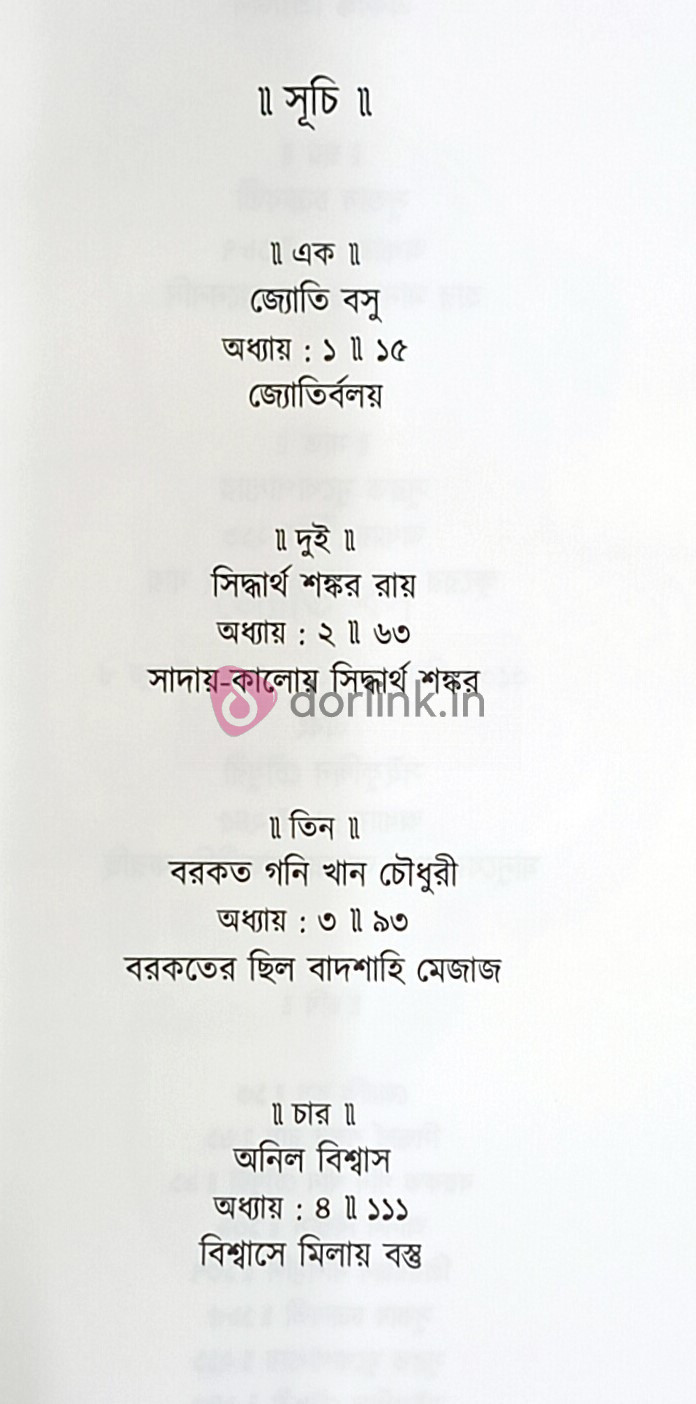 ॥ সূচি ॥
॥ এক ॥
জ্যোতি বসু
অধ্যায় : ১ ॥ ১৫
জ্যোতির্বলয়
॥ দুই ॥
সিদ্ধার্থ শঙ্কর রায়
অধ্যায় : ২ ॥ ৬৩
সাদায়-কালোয় সিদ্ধার্থ শঙ্কর
dorlink.in
॥ তিন ॥
বরকত গনি খান চৌধুরী
অধ্যায় : ৩ ॥ ৯৩
বরকতের ছিল বাদশাহি মেজাজ
॥ চার ॥
অনিল বিশ্বাস
অধ্যায় : ৪ ॥ ১১১
বিশ্বাসে মিলায় বস্তু